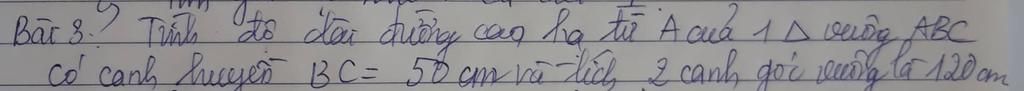 Bài 3: Tính độ dài đường cao hạ từ A của 1 Δ vuông ABC
có cạnh huyền BC = 50 cm và tích 2 cạnh góc vuông là 120 cm